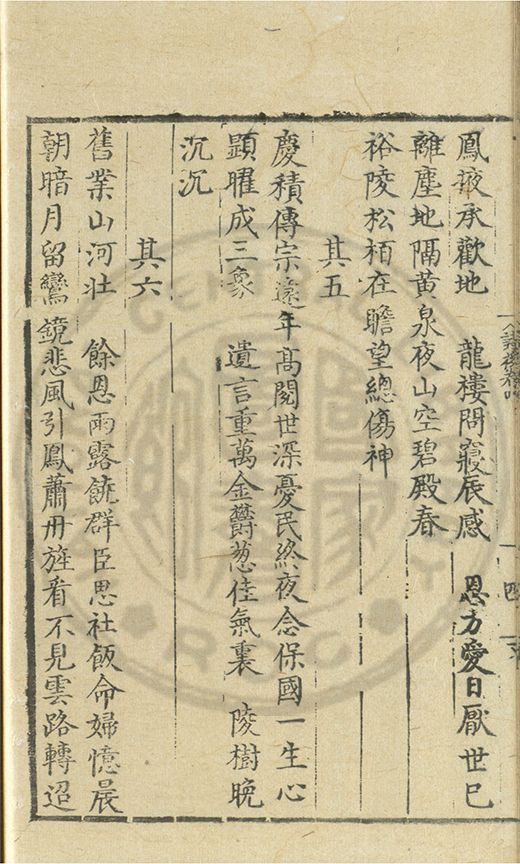 鳳掖承歡地　龍樓問寢辰感　恩方愛日厭世巳
離塵地隔黃泉夜山空碧殿春
裕陵松栢在瞻望總傷神
其五
慶積傳宗遠年高閱世深憂民終夜念保國一生心
顯曜成三象　遺言重萬金欝葱佳氣裏　陵樹晩
沉沉
其六
舊業山河壯　餘恩雨露饒群臣思社飯命婦憶晨
朝暗月留鸞鏡悲風引鳳簫丹旌看不見雲路轉迢
四